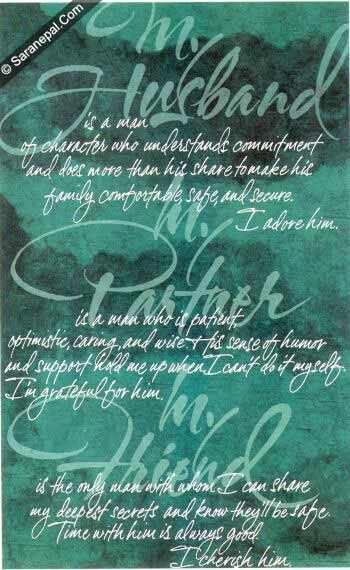 © Saranepal.com
My
Husband
is a man
of character who understands commitment
and does more than his share to make his
family comfortable, safe, and secure.
I adore him.
My
Partner
is a man who is patient,
optimistic, caring, and wise & his sense of humor
and support hold me up when I can't do it myself.
I'm grateful for him.
My
Friend
is the only man with whom I can share
my deepest secrets and know they'll be safe.
Time with him is always good.
I cherish him.